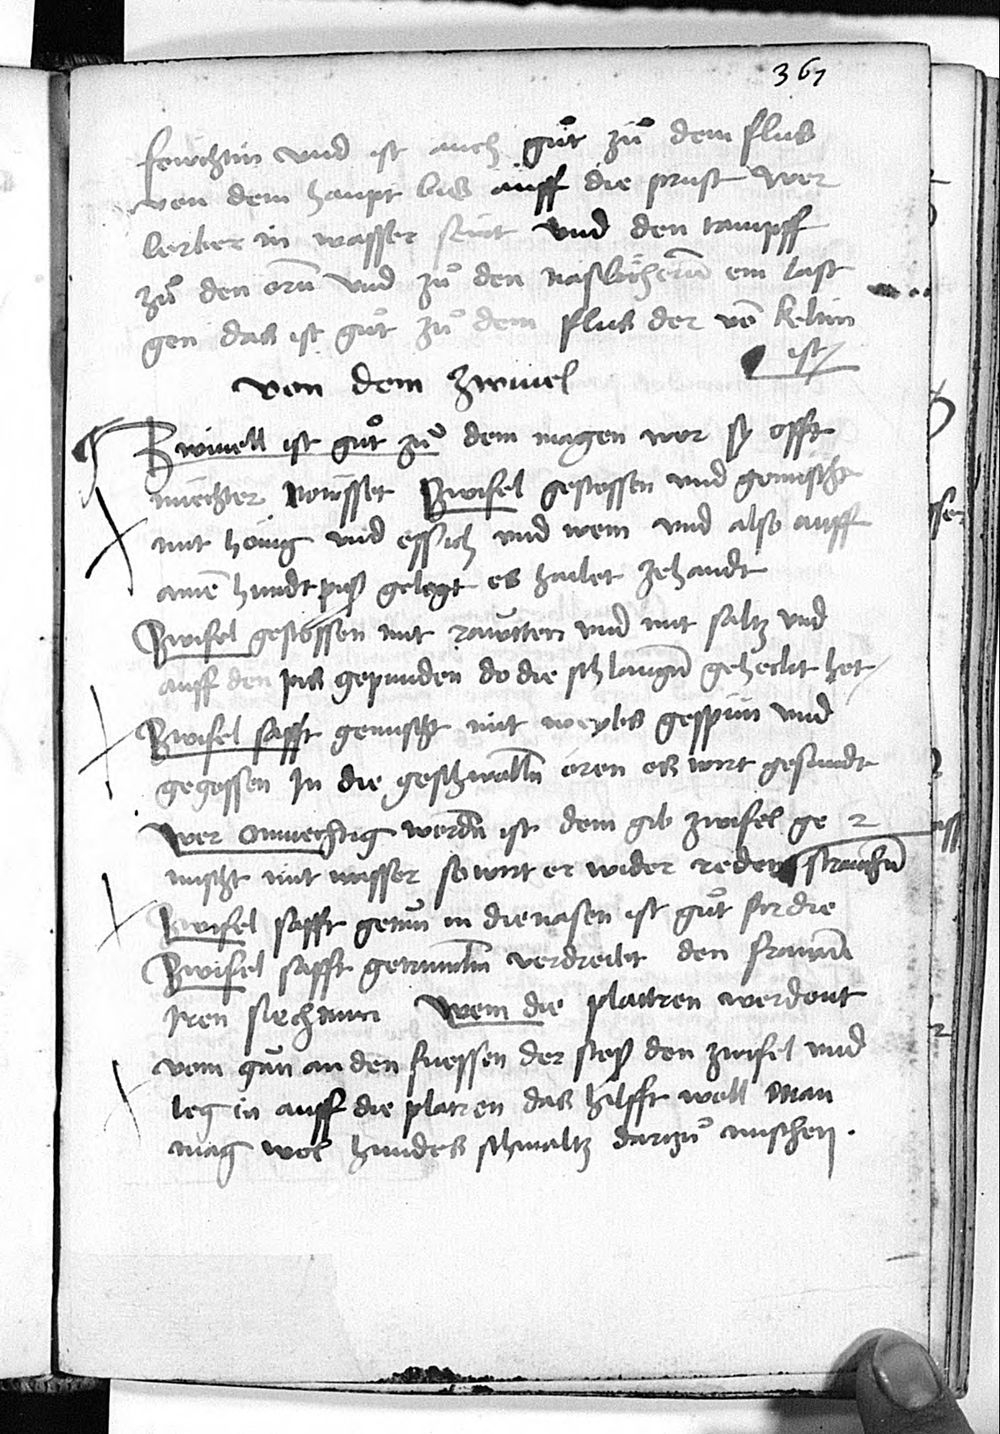 367
fewchtin vnd ist auch gůt zů dem flus
von dem haupt bis auff die prust Wer
lorber in wasser seüt vnd den tampff
zů den orn̄ vnd zů den naslöchern̄ ein last
gen das ist gůt zů dem flus der vō keltin
ist
von dem zwiuel
Zwiuell ist gůt zů dem magen wer sy offt
nüechter neüsset Zwifel gestossen vnd gemischt
mit hönig vnd essich vnd wein vnd also auff
ainē hundt piß gelegt es hailet zehandt
Zwifel gestossen mit rautten vnd mit saltz vnd
auff den pis gepunden do die schlangn̄ geheckt het
Zwifel safft gemischt mit weybs gespün vnd
gegossen In die geschwolln̄ oren es wirt gesundt
Wer onmechtig wordn̄ ist dem gib zwifel ge
mischt mit wasser so wirt er wider reden strauchn̄
Zwifel safft getun in die nasen ist gůt fur die
Zwifel safft getrunckn̄ verdreibt den frawen̄
Iren siechtum Wem die plattren werdent
vom gun an den fuessen der stoß den zwifel vnd
leg in auff die platren das hilfft woll Man
mag wol hundes schmaltz darzů mischen.